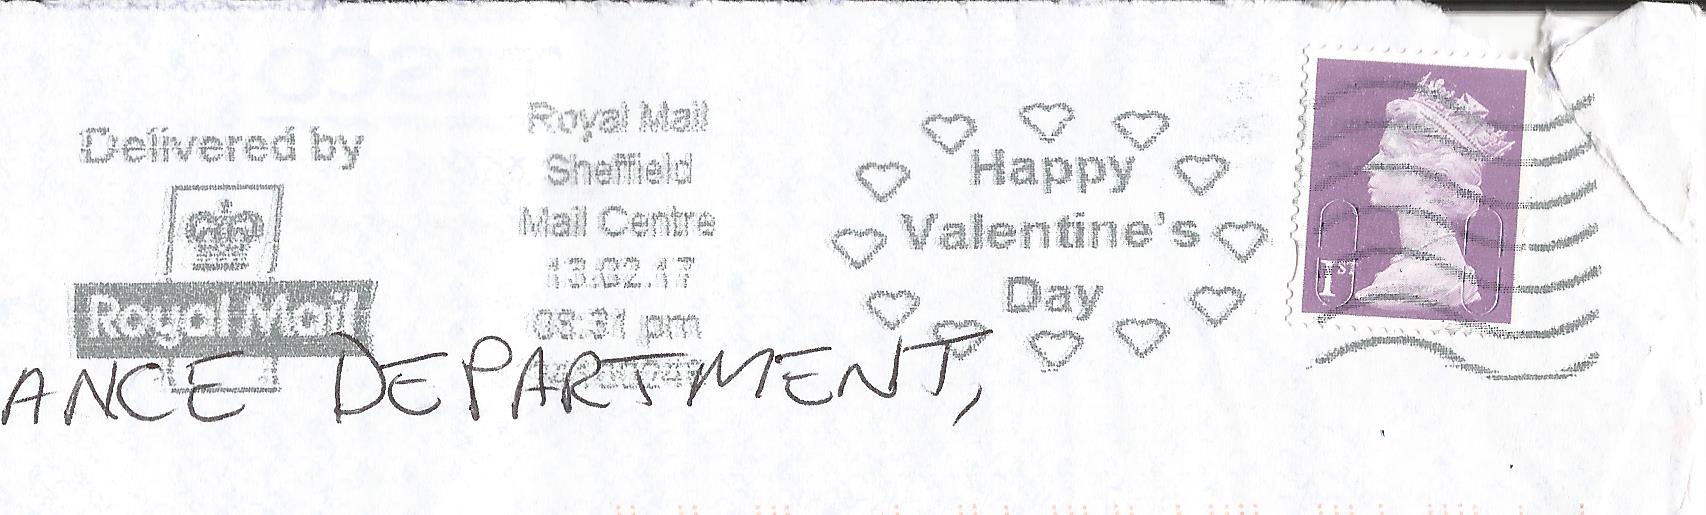 Delivered by
Royal Mail
Royal Mail
Sheffield
Mail Centre
13.02.17
08:31 pm
Happy
Valentine's
Day
1ST
ANCE DEPARTMENT,